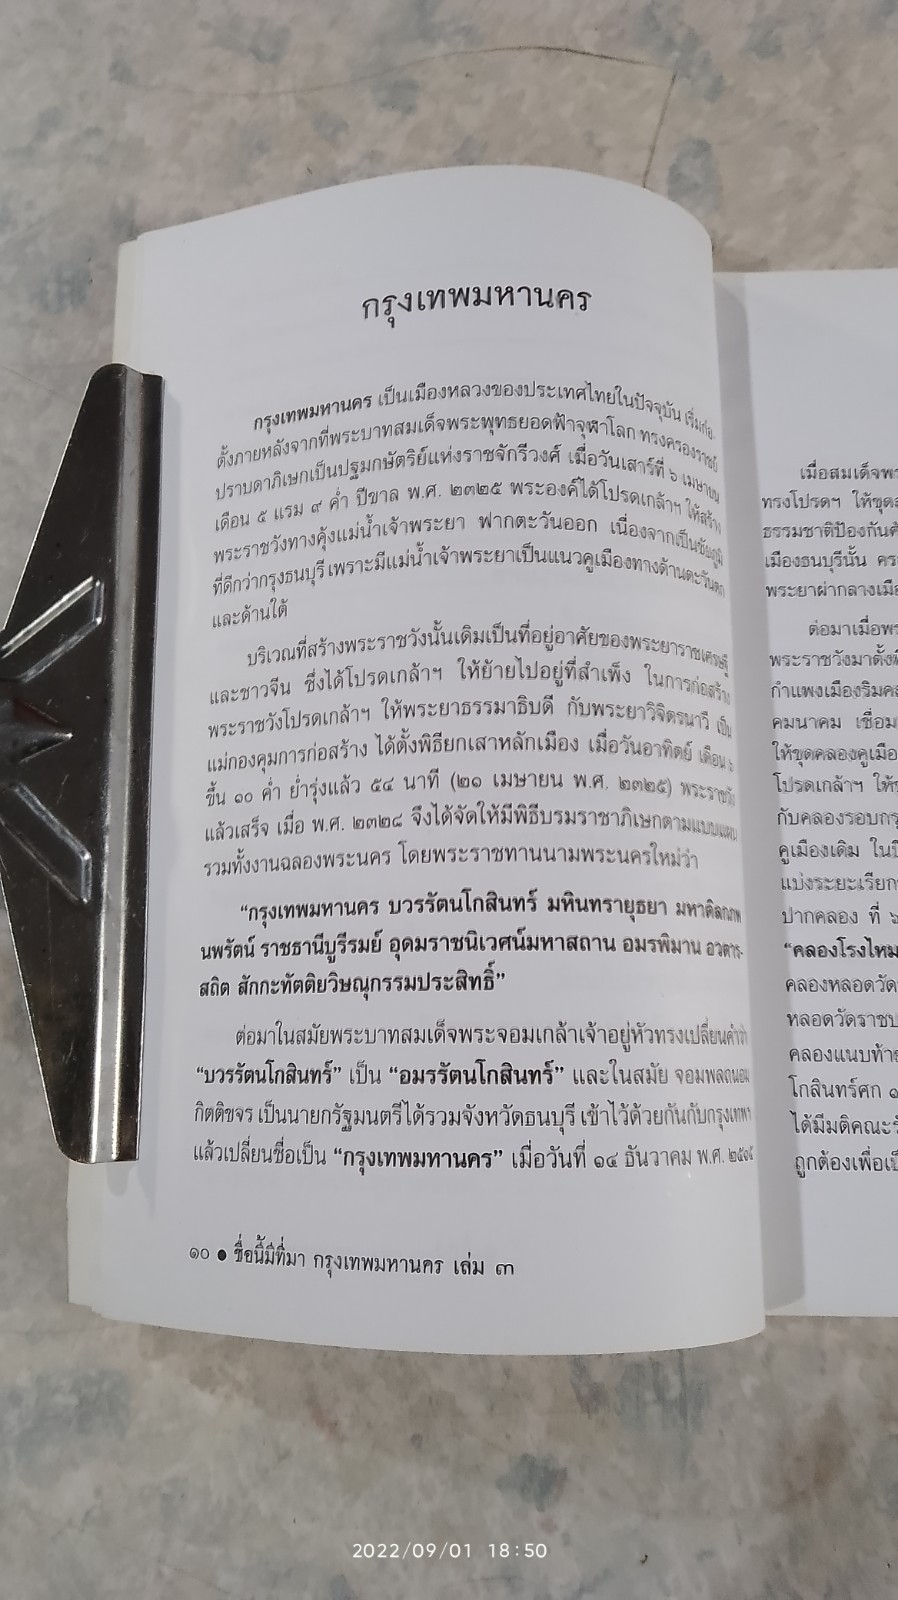 กรุงเทพมหานคร
กรุงเทพมหานคร เป็นเมืองหลวงของประเทศไทยในปัจจุบัน เริ่มก่อ-
ตั้งภายหลังจากที่พระบาทสมเด็จพระพุทธยอดฟ้าจุฬาโลก ทรงครองราชย์
ปราบดาภิเษกเป็นปฐมกษัตริย์แห่งราชจักรีวงศ์ เมื่อวันเสาร์ที่ ๖ เมษายน
เดือน ๕ แรม ๙ ค่ำ ปีขาล พ.ศ. ๒๓๒๕ พระองค์ได้โปรดเกล้าฯ ให้สร้าง
พระราชวังทางคุ้งแม่น้ำเจ้าพระยา ฟากตะวันออก เนื่องจากเป็นชัยภูมิ
ที่ดีกว่ากรุงธนบุรี เพราะมีแม่น้ำเจ้าพระยาเป็นแนวคูเมืองทางด้านตะวันตก
และด้านใต้
บริเวณที่สร้างพระราชวังนั้นเดิมเป็นที่อยู่อาศัยของพระยาราชเศรษฐี
และชาวจีน ซึ่งได้โปรดเกล้าฯ ให้ย้ายไปอยู่ที่สำเพ็ง ในการก่อสร้าง
พระราชวังโปรดเกล้าฯ ให้พระยาธรรมาธิบดี กับพระยาวิจิตรนาวี เป็น
แม่กองคุมการก่อสร้าง ได้ตั้งพิธียกเสาหลักเมือง เมื่อวันอาทิตย์ เดือน ๖
ขึ้น ๑๐ ค่ำ ย่ำรุ่งแล้ว ๕๔ นาที (๒๑ เมษายน พ.ศ. ๒๓๒๕) พระราชวัง
แล้วเสร็จ เมื่อ พ.ศ. ๒๓๒๘ จึงได้จัดให้มีพิธีบรมราชาภิเษกตามแบบแผน
รวมทั้งงานฉลองพระนคร โดยพระราชทานนามพระนครใหม่ว่า
“กรุงเทพมหานคร บวรรัตนโกสินทร์ มหินทรายุธยา มหาดิลกภพ
นพรัตน์ ราชธานีบูรีรมย์ อุดมราชนิเวศน์มหาสถาน อมรพิมาน อวตาร-
สถิต สักกะทัตติยวิษณุกรรมประสิทธิ์”
ต่อมาในสมัยพระบาทสมเด็จพระจอมเกล้าเจ้าอยู่หัวทรงเปลี่ยนคำว่า
“บวรรัตนโกสินทร์” เป็น “อมรรัตนโกสินทร์” และในสมัย จอมพลถนอม
กิตติขจร เป็นนายกรัฐมนตรีได้รวมจังหวัดธนบุรี เข้าไว้ด้วยกันกับกรุงเทพฯ
แล้วเปลี่ยนชื่อเป็น “กรุงเทพมหานคร” เมื่อวันที่ ๑๔ ธันวาคม พ.ศ. ๒๕๑๕
๑๐ ● ชื่อนี้มีที่มา กรุงเทพมหานคร เล่ม ๓
เมื่อสมเด็จ
ทรงโปรดฯ ให้ขุด
ธรรมชาติป้องกัน
เมืองธนบุรีนั้น
พระยาผ่ากลาง
ต่อมาเมื่อ
พระราชวังมาตั้ง
กำแพงเมืองริม
คมนาคม เชื่อม
ให้ขุดคลองคู
โปรดเกล้าฯ
กับคลองรอบ
คูเมืองเดิม
แบ่งระยะเรียก
ปากคลอง ที่
“คลองโรงไหม
คลองหลอดวัด
หลอดวัดราช
คลองแนบท้าย
โกสินทร์ศก
ได้มีมติคณะ
ถูกต้องเพื่อ
2022/09/01 18:50